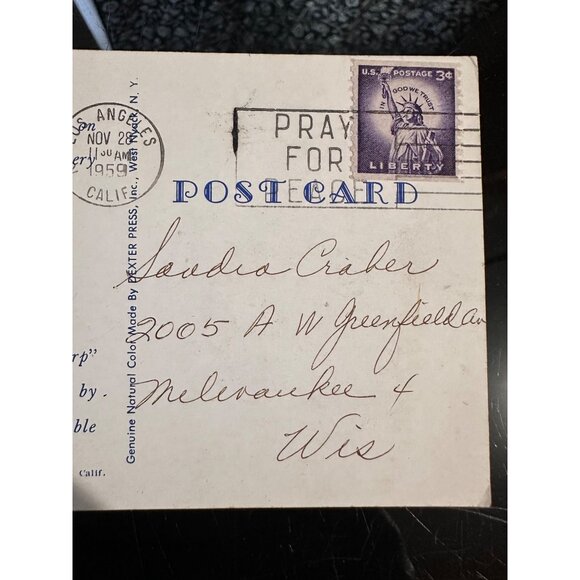 LOS ANGELES
NOV 28
11 00 AM
1959
CALIF.
PRAY
FOR
PEACE
U.S. POSTAGE 3¢
IN GOD WE TRUST
LIBERTY
POST CARD
on
ery
Genuine Natural Color Made By DEXTER PRESS, Inc., West Nyack, N. Y.
Sandra Craber
2005 A W Greenfield Av
Melevaukee 4
Wis
rp"
by.
ble
Calif.